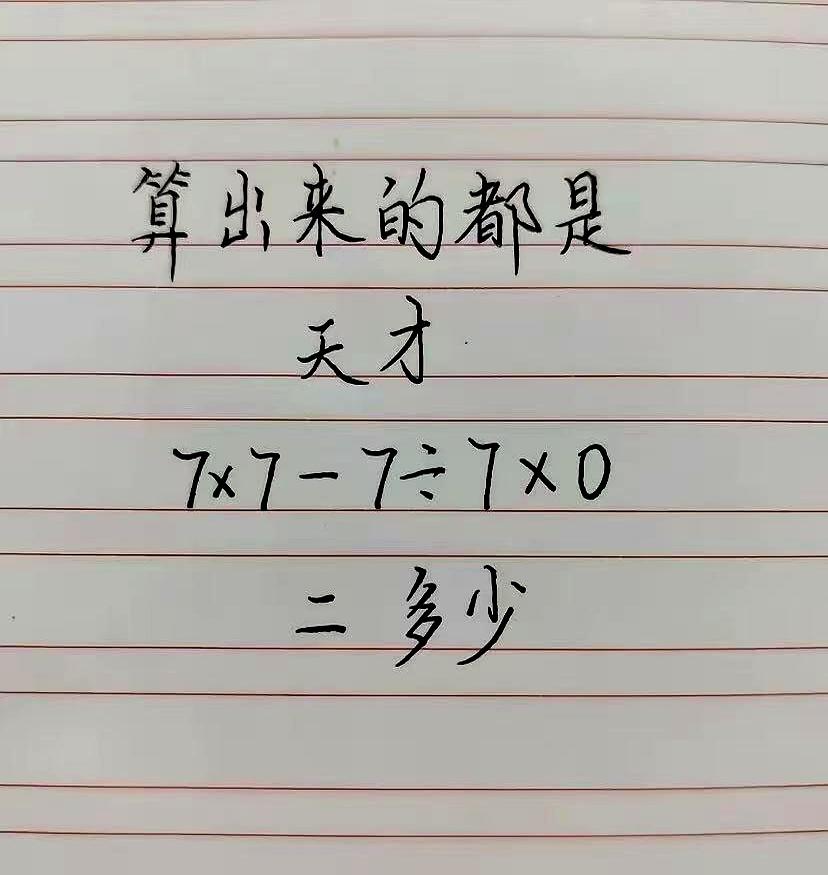 算出来的都是
天才
7×7-7÷7×0
=多少